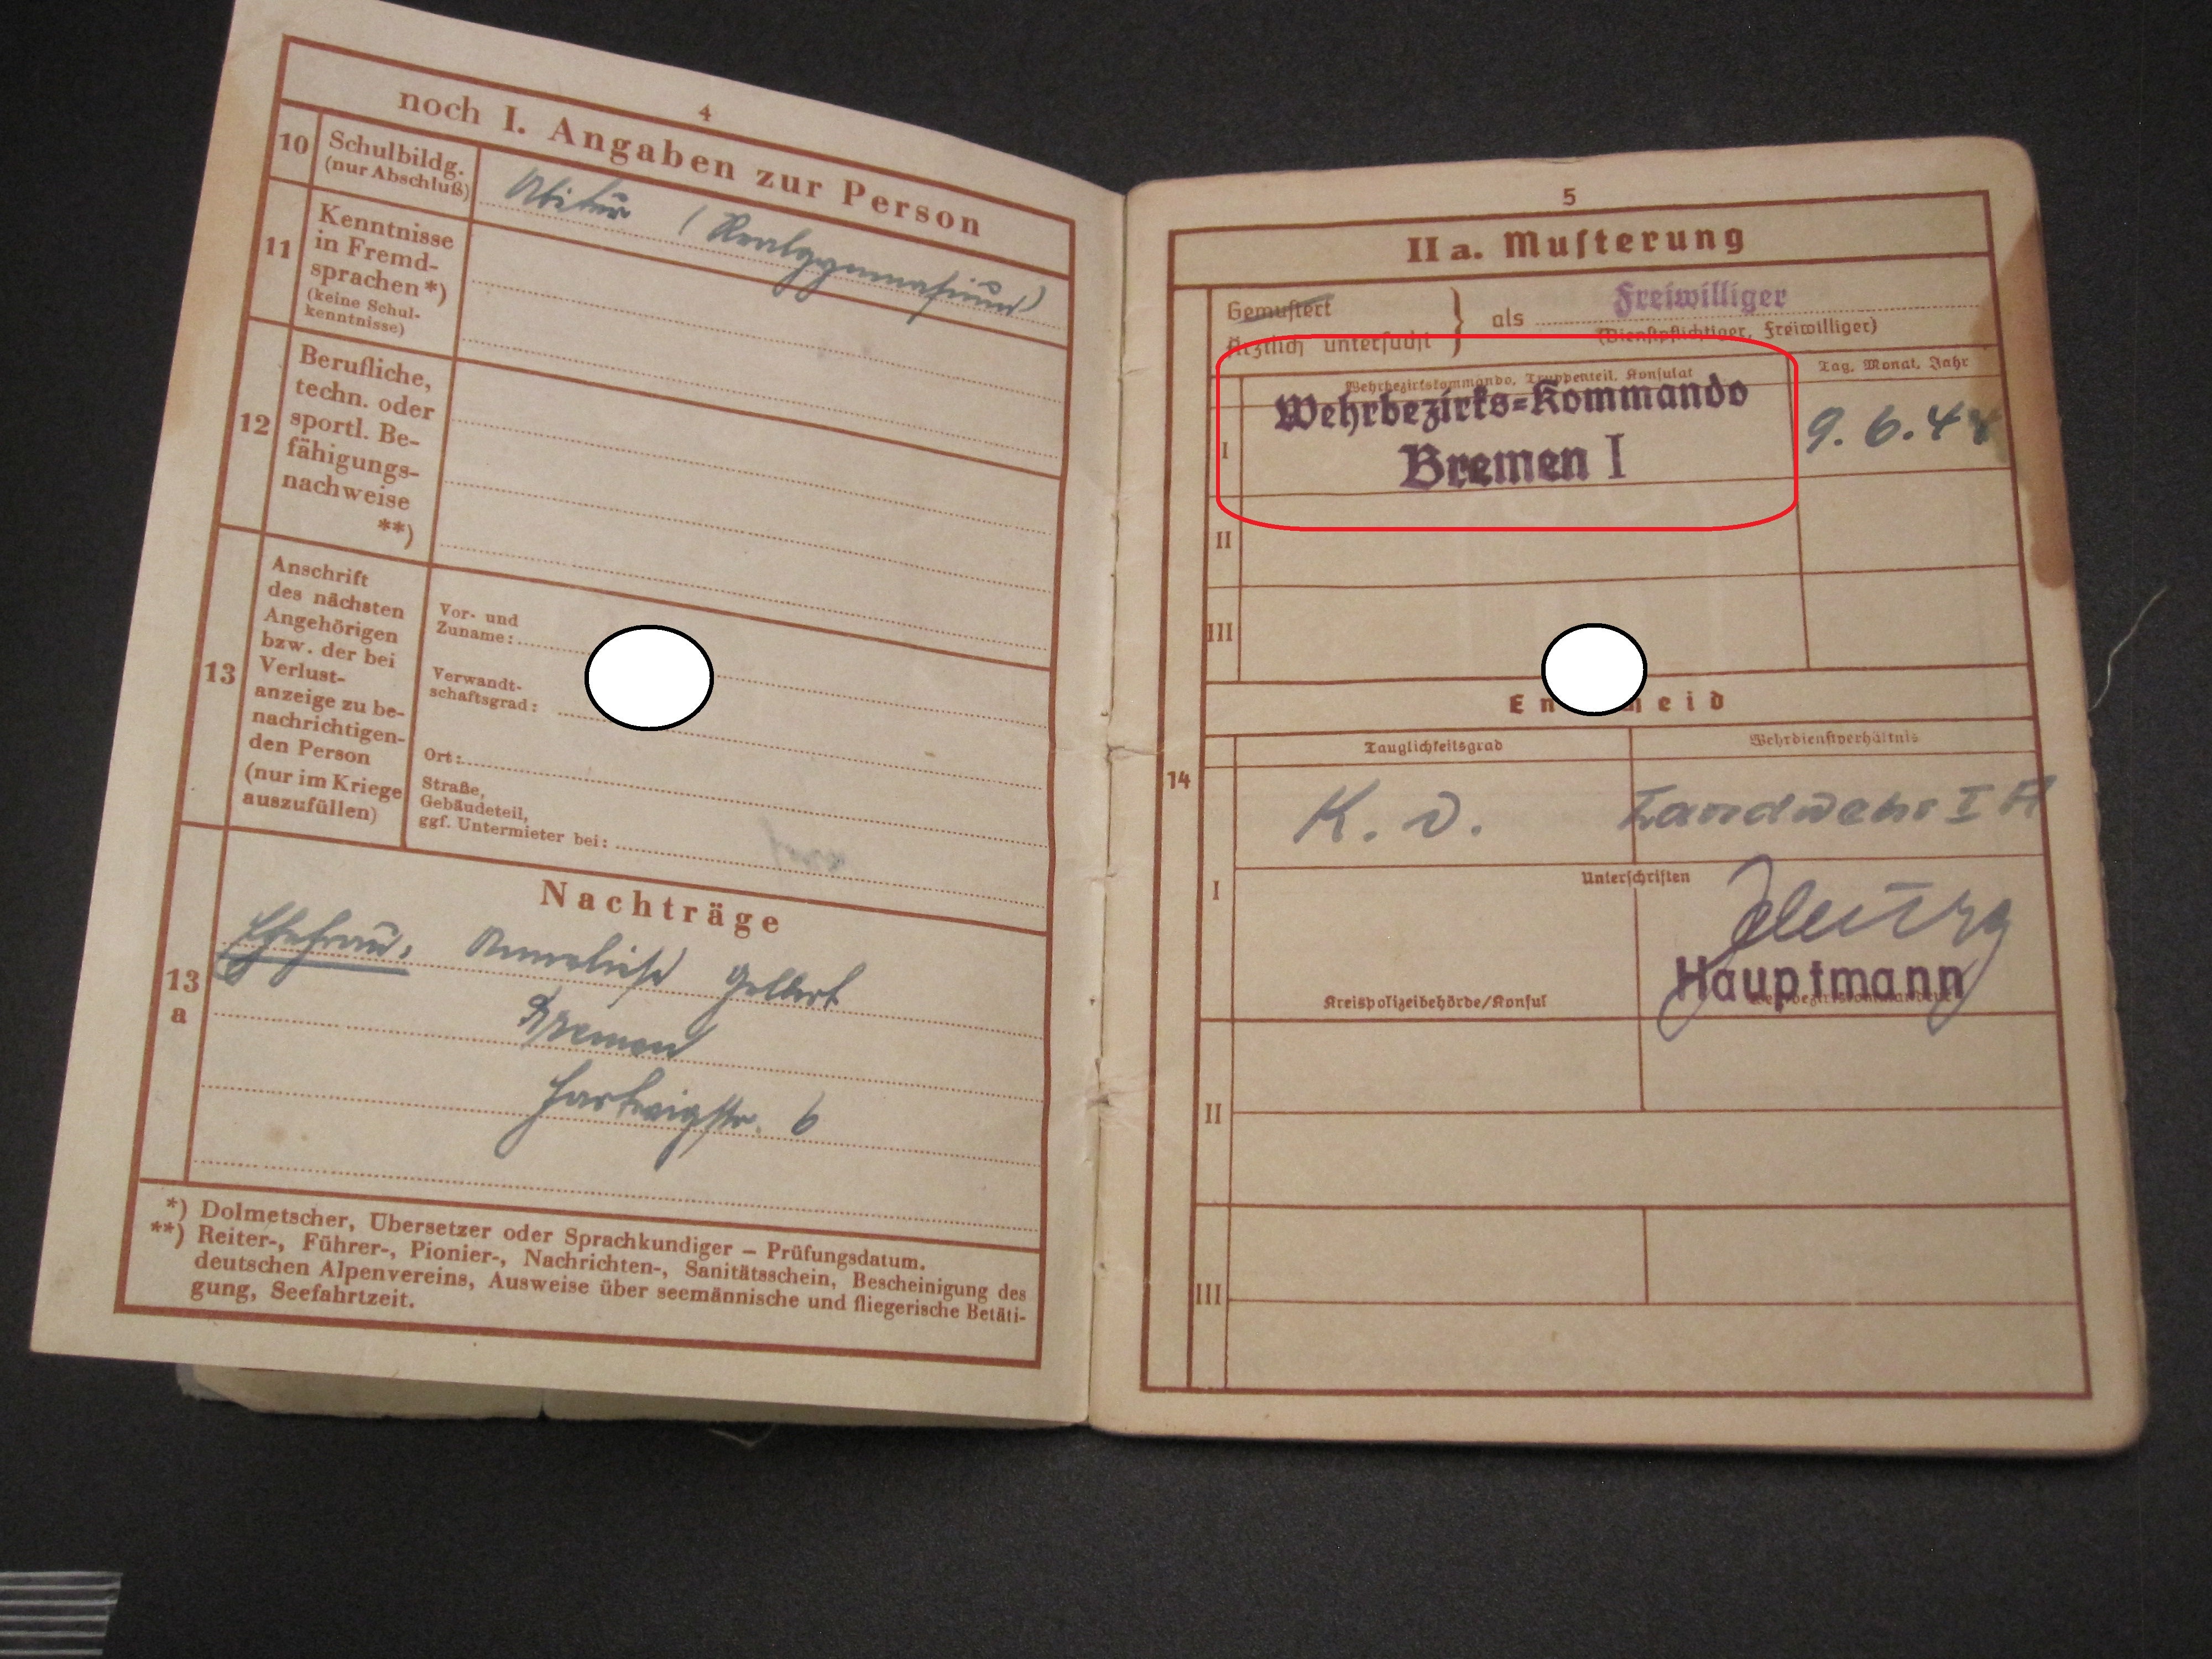 4
noch I. Angaben zur Person
10 Schulbildg. (nur Abschluß)
Abitur (Realgymnasium)
11 Kenntnisse in Fremd-
sprachen *)
(keine Schul-
kenntnisse)
12 Berufliche,
techn. oder
sportl. Be-
fähigungs-
nachweise
**)
13 Anschrift
des nächsten
Angehörigen
bzw. der bei
Verlust-
anzeige zu be-
nachrichtigen-
den Person
(nur im Kriege
auszufüllen)
Vor- und
Zuname:
Verwandt-
schaftsgrad:
Ort:
Straße,
Gebäudeteil,
ggf. Untermieter bei:
Nachträge
13 a
Ehefrau: Anneliese Gellert
Bremen
Hartwigstr. 6
*) Dolmetscher, Übersetzer oder Sprachkundiger – Prüfungsdatum.
**) Reiter-, Führer-, Pionier-, Nachrichten-, Sanitätsschein, Bescheinigung des
deutschen Alpenvereins, Ausweise über seemännische und fliegerische Betäti-
gung, Seefahrtzeit.
5
II a. Muſterung
Gemuſtert
Ärztlich unterſucht } als Freiwilliger
(Dienſtpflichtiger, Freiwilliger)
Wehrbezirkskommando, Truppenteil, Konſulat
Tag, Monat, Jahr
I
Wehrbezirks=Kommando
Bremen I
9. 6. 44
II
III
14
Tauglichkeitsgrad
Wehrdienſtverhältnis
I
K. v.
Landwehr I A
Unterſchriften
Hauptmann
Kreispolizeibehörde/Konſul
II
III